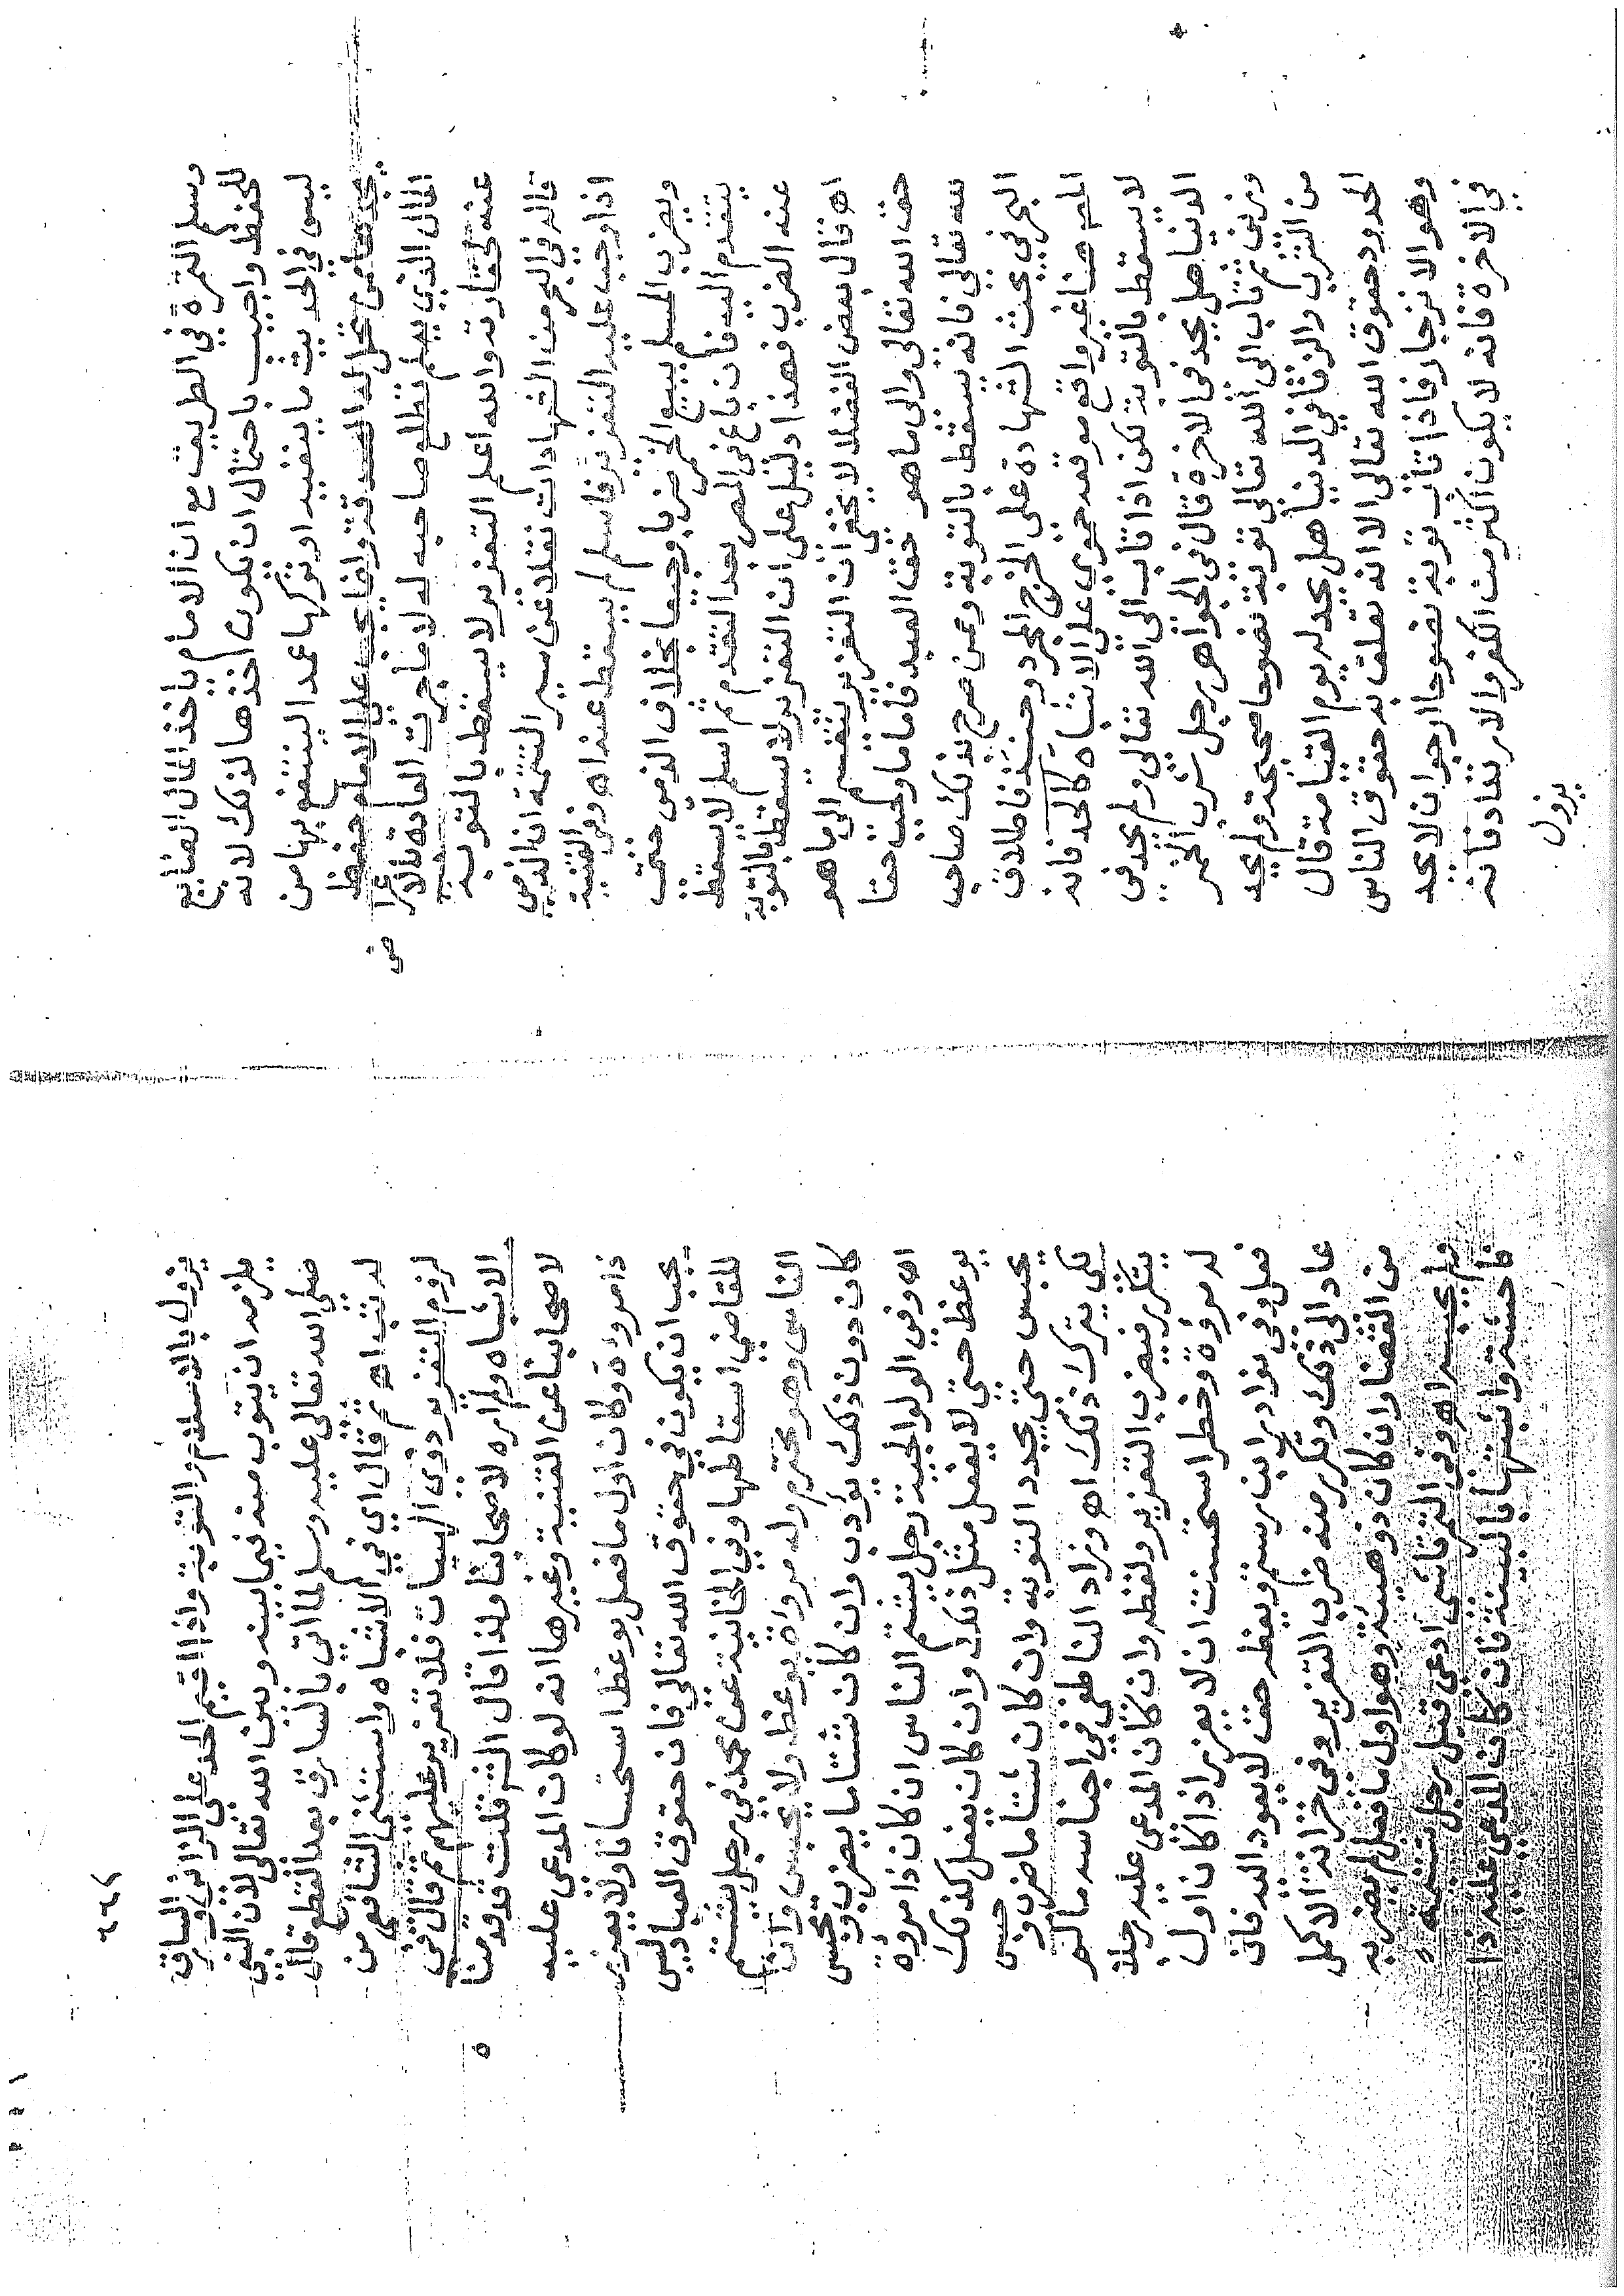 وسلم الثمرة في الطريق مع ان الامام يأخذ المال الضايع
للحفظ واجيب باحتمال ان تكون اخذها لذلك لانه
ليس في الحديث ما ينفيه او تركها عمدا لينتفع بها من
يجدها ممن تحل له الصدقة وانما يجب على الامام حفظ
المال الذي يعلم تطلع صاحبه له لا ما جرت العادة بالاعراض
عنه لحقارته والله اعلم التعزير لا يسقط بالتوبة
قال في البحر من الشهادات نقلا عن سير التتمة ان الذمي
اذا وجب عليه التعزير فاسلم لم يسقط عنه اه وفي القنية
ويضرب المسلم ببيع الخمر ضربا وجيعا بخلاف الذمي حتى
يتقدم اليه فان باع في المصر بعد التقدم ثم اسلم لا يسقط
عنه الضرب فهذا دليل على ان التعزير لا يسقط بالتوبة
اه قال بعض الفضلا لا يخفى ان التعزير ينقسم الى ما هو
حق الله تعالى والى ما هو حق العبد فاما ما وجب حقا
لله تعالى فانه يسقط بالتوبة وممن صرح بذلك صاحب
البحر في بحث الشهادة على الجرح المجرد وحينئذ فاطلاق
المص هنا غير واقع موقعه حموي على الاشباه كالحد فانه
لا يسقط بالتوبة لكن اذا تاب الى الله تعالى ولم يحد في
الدنيا هل يحد في الاخرة قال في الجواهر رجل شرب الخمر
وزنى ثم تاب الى الله تعالى توبة نصوحا صحيحة ولم يحد
من الشرب والزنا في الدنيا هل يحد له يوم القيامة قال
الحدود حقوق الله تعالى الا انه تعلق به حقوق الناس
وهو الانزجار فاذا تاب توبة نصوحا ارجو ان لا يحد
في الاخرة فانه لا يكون اكثر من الكفر والارتداد فانه
يزول
٢٢٦
يزول بالاسلام والتوبة واذا اقيم الحد على الزاني والسارق
يلزمه ان يتوب منه فيما بينه وبين الله تعالى لان النبي
صلى الله تعالى عليه وسلم لما اتي بالسارق بعد القطع قال
له تب اه ثم قال اي في الاشباه واستثنى الشافعي من
لزوم التعزير ذوي الهيئات فلا تعزير عليهم ثم قال في
الاشباه ولم اره لاصحابنا ولذا قال الش قلت قد قدمنا
لاصحابنا عن القنية وغيرها انه لو كان المدعى عليه
ذا مروءة وكان اول ما فعل يوعظ استحسانا ولا يعزر
يجب ان يكون في حقوق الله تعالى فان حقوق العباد ليس
للقاضي اسقاطها وفي الخانية عن محمد في رجل يشتم
الناس وهو محترم وله مروءة يوعظ ولا يحبس وان
كان دون ذلك يؤدب وان كان شتاما يضرب ويحبس
اه وفي الولوالجية رجل يشتم الناس ان كان ذا مروءة
يوعظ حتى لا يفعل مثل ذلك وان كان يفعل كذلك
يحبس حتى يجدد التوبة وان كان شتاما ضرب وحبس
لكي يترك ذلك اه وزاد الناطفي في اجناسه ما لم
يتكرر فيضرب التعزير ولفظه وان كان المدعى عليه رجلا
له مروءة وخطر استحسنت ان لا يعزر اذا كان اول
فعل وفي نوادر ابن رستم ويعظه حتى لا يعود اليه فان
عاد الى ذلك وتكرر منه ضرب التعزير وفي خزانة الاكمل
من القضا وان كان ذو هيئة وهو اول ما فعل لم يضربه
ولم يحبسه اه وفي التمرتاشي ادعى قبل رجل شتيمة
فاحشة واثبتها بالبينة فان كان المدعى عليه ذا